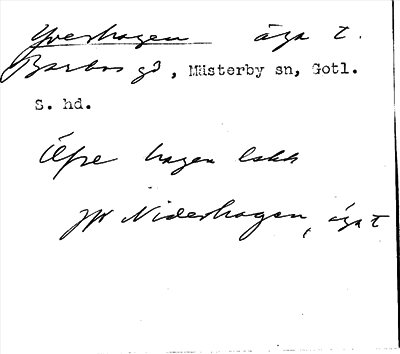 Yverhagen äga t.
Barbos gd, Mästerby sn, Gotl.
S. hd.
Övre hagen lokk
jfr Niderhagen, äga t